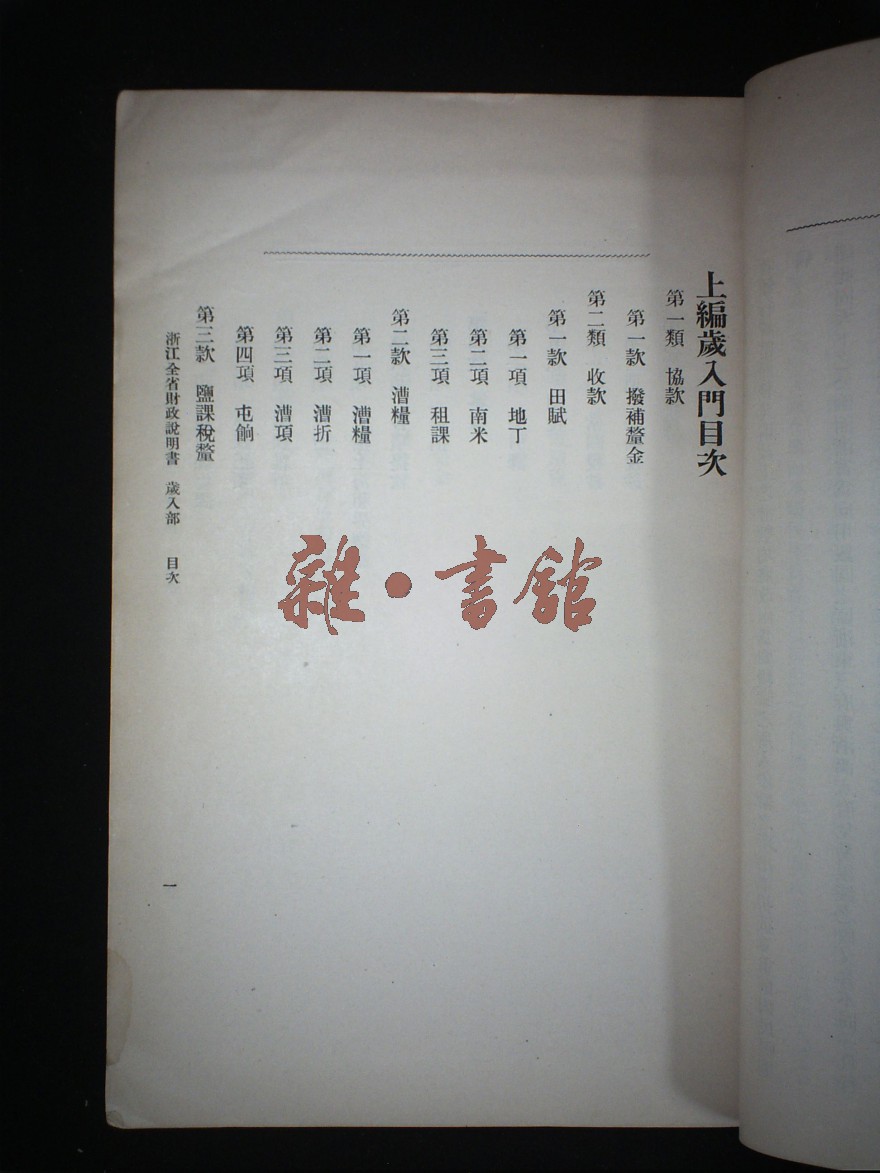 上編歲入門目次
第一類　協款
第一款　撥補釐金
第二類　收款
第一款　田賦
第一項　地丁
第二項　南米
第三項　租課
第二款　漕糧
第一項　漕糧
第二項　漕折
第三項　漕項
第四項　屯餉
第三款　鹽課稅釐
浙江全省財政說明書　歲入部　目次
一
雜·書館